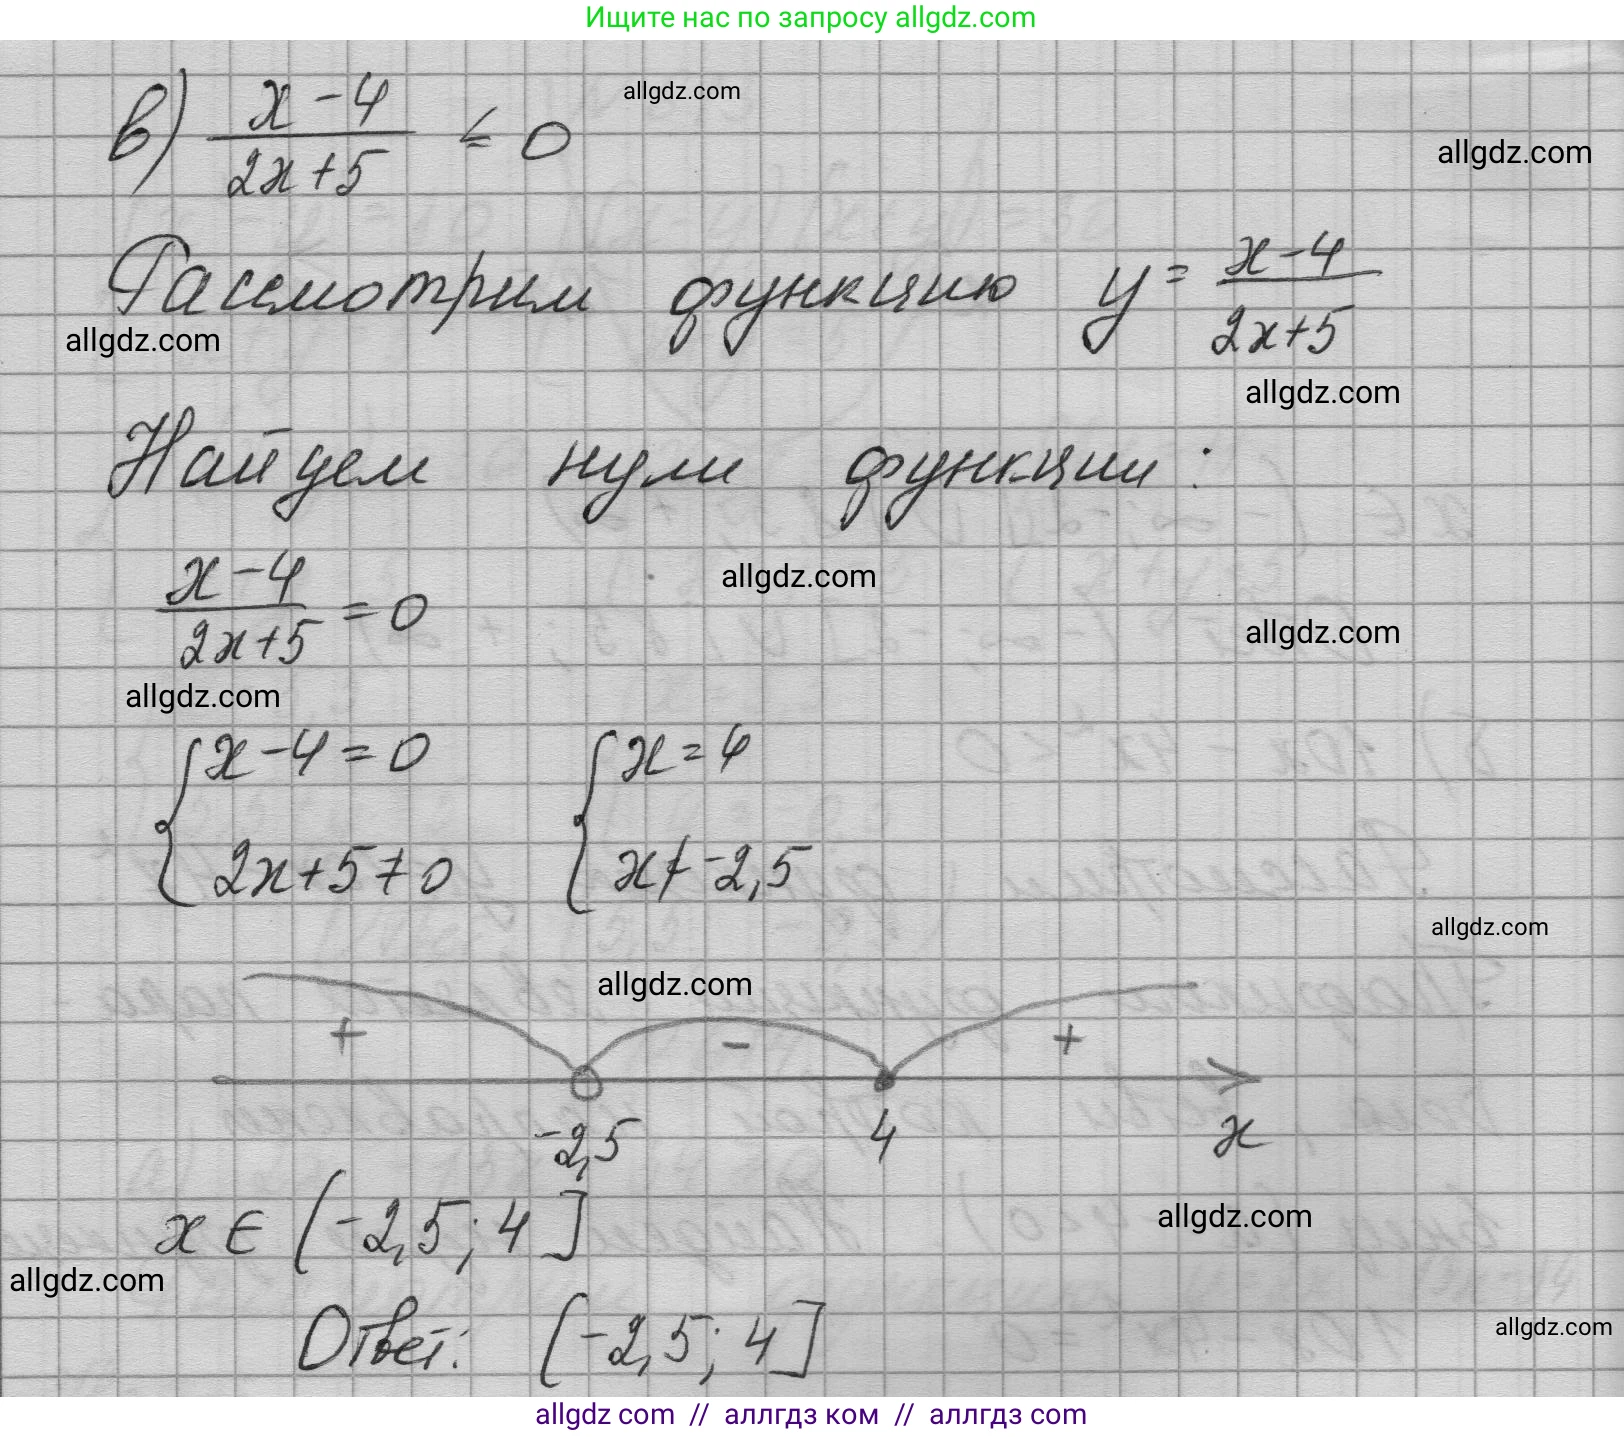 Ищите нас по запросу allgdz.com
allgdz.com
в) (x-4)/(2x+5) ≤ 0
allgdz.com
Рассмотрим функцию y = (x-4)/(2x+5)
allgdz.com
allgdz.com
Найдем нули функции:
(x-4)/(2x+5) = 0
allgdz.com
allgdz.com
allgdz.com
{ x-4=0 { x=4
{ 2x+5≠0 { x≠-2,5
allgdz.com
allgdz.com
+ - +
-2,5 4 x
x ∈ (-2,5; 4]
allgdz.com
allgdz.com
Ответ: (-2,5; 4]
allgdz.com
allgdz com // аллгдз ком // аллгдз com